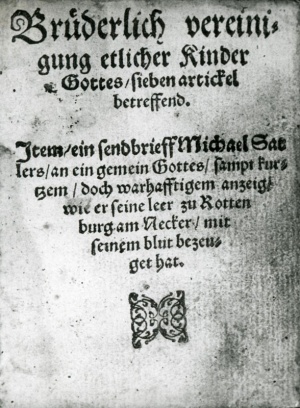 Brüderlich vereini-
gung etlicher Kinder
Gottes/sieben artickel
betreffend.
Item/ein sendbrieff Michael Sat
lers/an ein gemein Gottes/sampt kur-
tzem/doch warhafftigem anzeig/
wie er seine leer zu Rotten
burg am Necker/mit
seinem blut bezeu-
get hat.